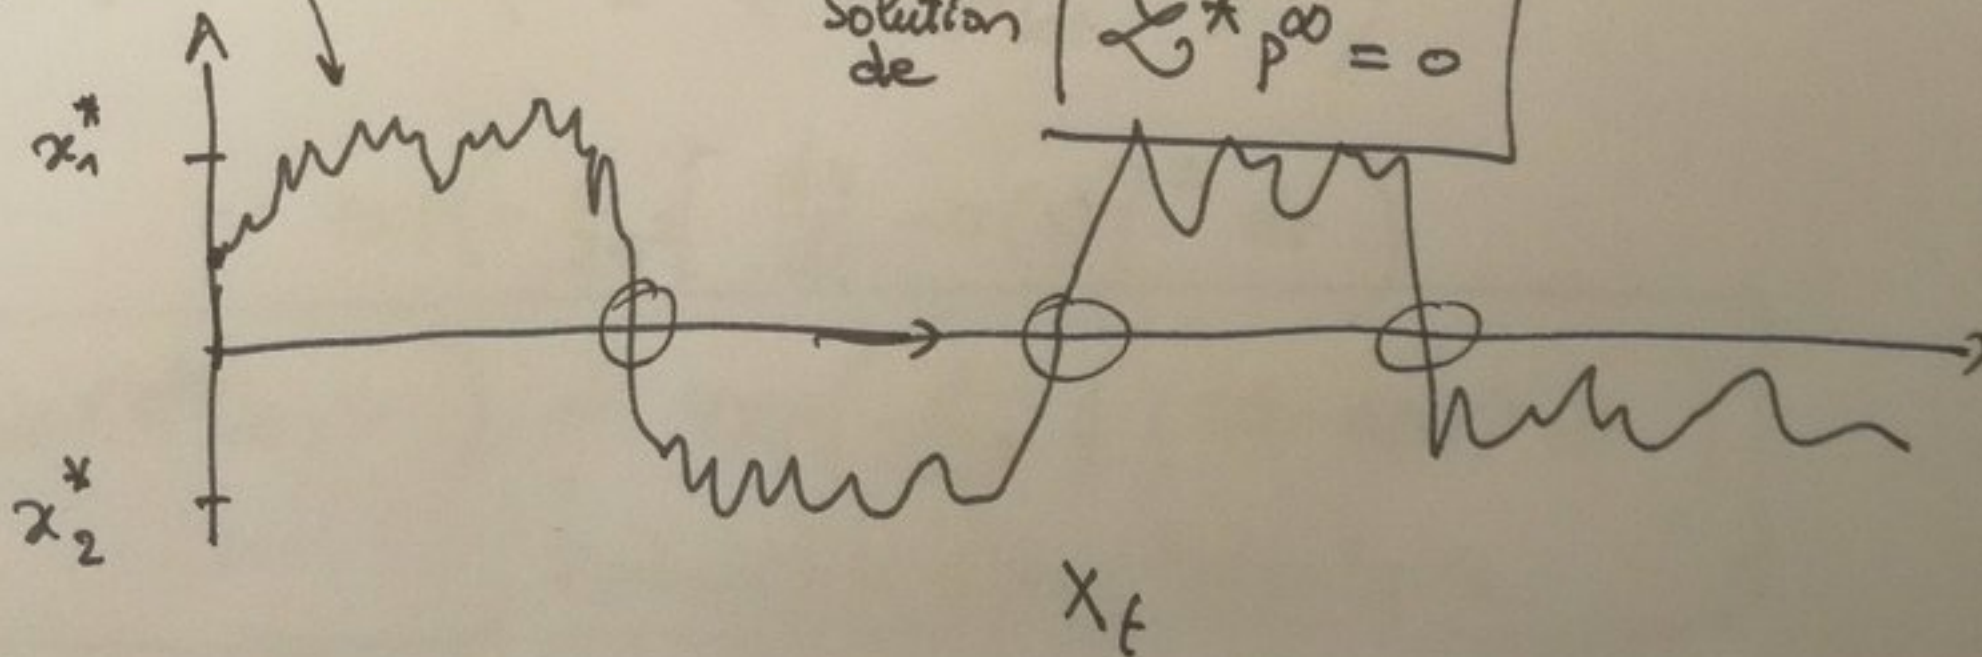 solution
de
ℒ* p^∞ = 0
x₁*
x₂*
X_t